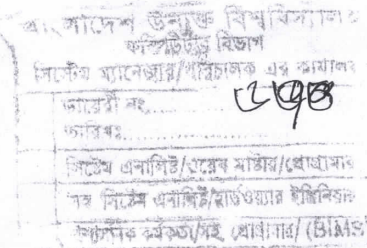 বাংলাদেশ উন্মুক্ত বিশ্ববিদ্যালয়
কম্পিউটার বিভাগ
সিস্টেম ম্যানেজার/পরিচালক এর কার্যালয়
ডায়েরী নং
তারিখঃ
সিস্টেম এনালিষ্ট/ওয়েব মাষ্টার/প্রোগ্রামার
সহ সিস্টেম এনালিষ্ট/হার্ডওয়্যার ইঞ্জিনিয়ার
কর্মকর্তা/সহ প্রোগ্রামার/ (BIMS)